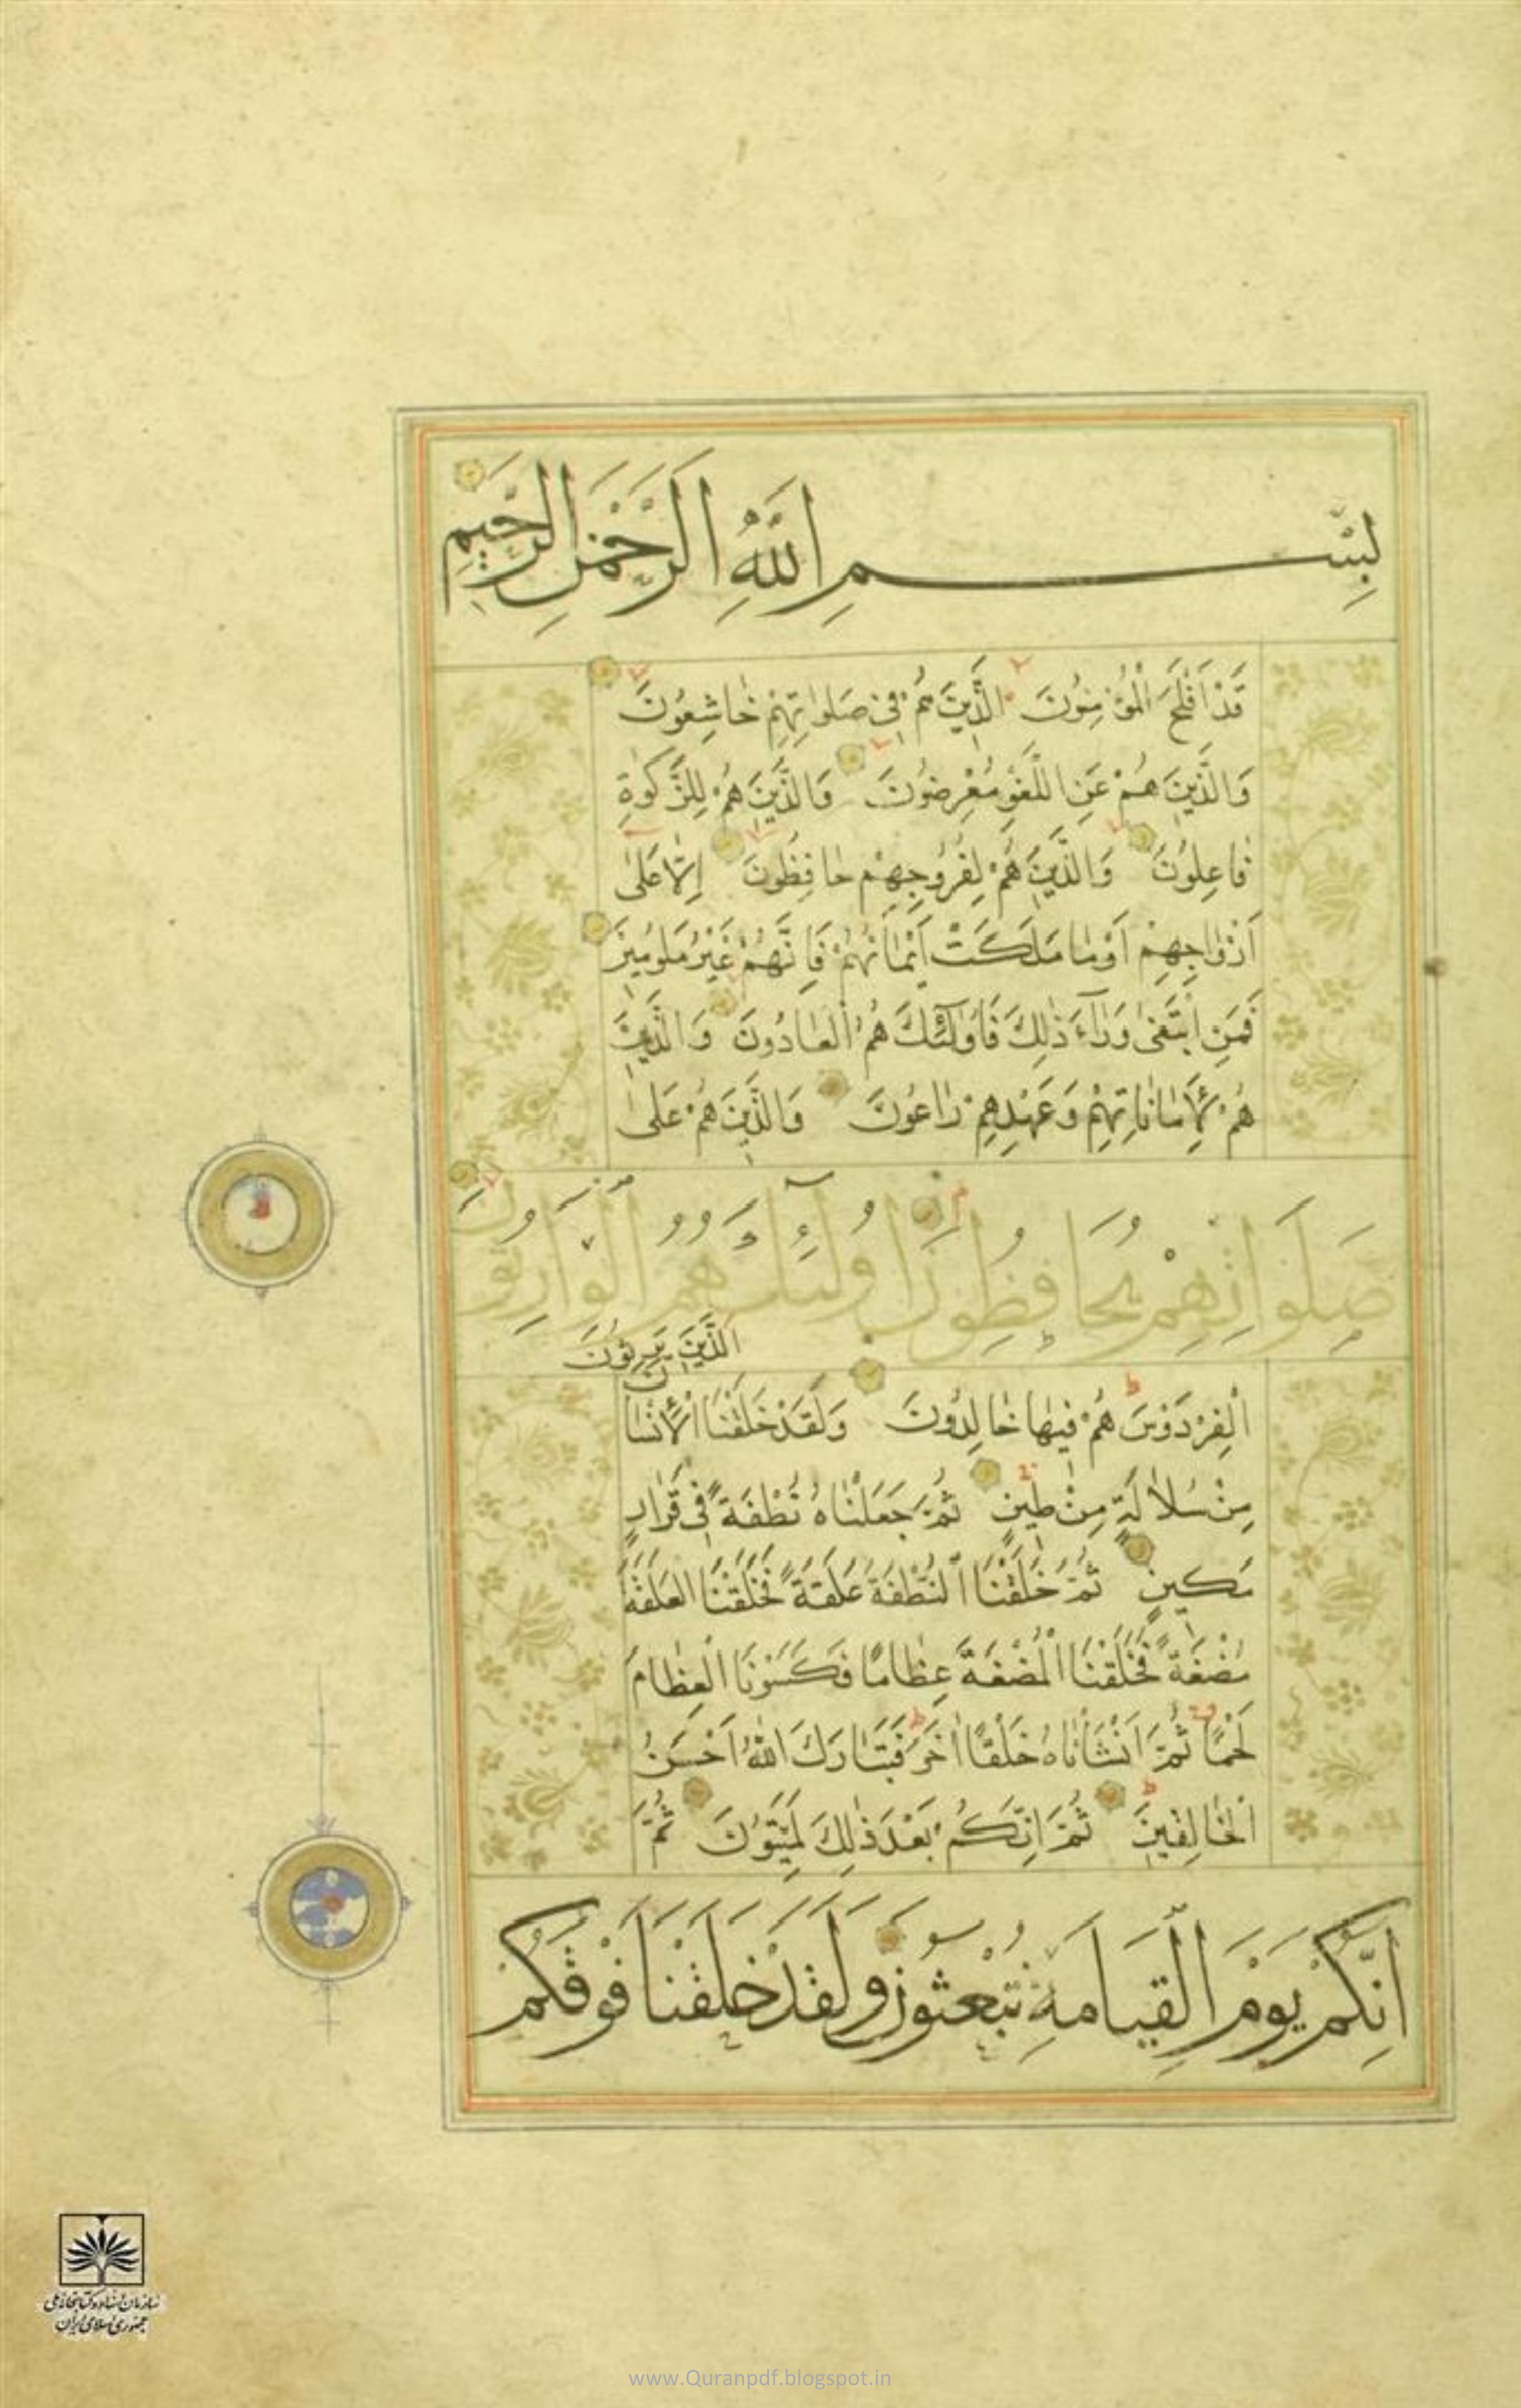 بِسْمِ اللّٰهِ الرَّحْمٰنِ الرَّحِيمِ
قَدْ اَفْلَحَ الْمُؤْمِنُونَ الَّذِينَ هُمْ فِى صَلٰوتِهِمْ خَاشِعُونَ
وَالَّذِينَ هُمْ عَنِ اللَّغْوِ مُعْرِضُونَ وَالَّذِينَ هُمْ لِلزَّكٰوةِ
فَاعِلُونَ وَالَّذِينَ هُمْ لِفُرُوجِهِمْ حَافِظُونَ اِلَّا عَلٰى
اَزْوَاجِهِمْ اَوْ مَا مَلَكَتْ اَيْمَانُهُمْ فَاِنَّهُمْ غَيْرُ مَلُومِينَ
فَمَنِ ابْتَغٰى وَرَآءَ ذٰلِكَ فَاُولٰئِكَ هُمُ الْعَادُونَ وَالَّذِينَ
هُمْ لِاَمَانَاتِهِمْ وَعَهْدِهِمْ رَاعُونَ وَالَّذِينَ هُمْ عَلٰى
صَلَوَاتِهِمْ يُحَافِظُونَ اُولٰئِكَ هُمُ الْوَارِثُونَ
الَّذِينَ يَرِثُونَ
الْفِرْدَوْسَ هُمْ فِيهَا خَالِدُونَ وَلَقَدْ خَلَقْنَا الْاِنْسَانَ
مِنْ سُلَالَةٍ مِنْ طِينٍ ثُمَّ جَعَلْنَاهُ نُطْفَةً فِى قَرَارٍ
مَكِينٍ ثُمَّ خَلَقْنَا النُّطْفَةَ عَلَقَةً فَخَلَقْنَا الْعَلَقَةَ
مُضْغَةً فَخَلَقْنَا الْمُضْغَةَ عِظَامًا فَكَسَوْنَا الْعِظَامَ
لَحْمًا ثُمَّ اَنْشَاْنَاهُ خَلْقًا اٰخَرَ فَتَبَارَكَ اللّٰهُ اَحْسَنُ
الْخَالِقِينَ ثُمَّ اِنَّكُمْ بَعْدَ ذٰلِكَ لَمَيِّتُونَ ثُمَّ
اِنَّكُمْ يَوْمَ الْقِيَامَةِ تُبْعَثُونَ وَلَقَدْ خَلَقْنَا فَوْقَكُمْ
سازمان اسناد و کتابخانه ملی
جمهوری اسلامی ایران
www.Quranpdf.blogspot.in